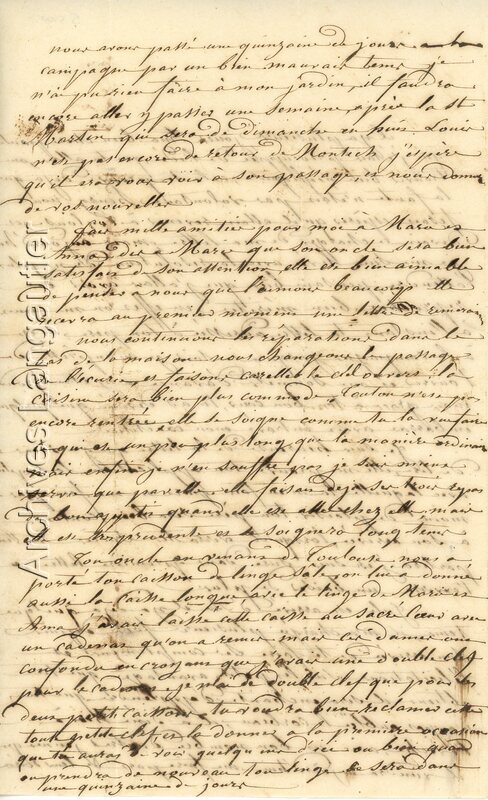 nous avons passé une quinzaine de jours a la
campagne par un bien mauvais tems je
n'ai pu rien faire à mon jardin, il faudra
encore aller y passer une semaine, après la St
Martin qui sera de dimanche en huit Louis
n'est pas encore de retour de Montech j'espère
qu'il ira vous voir à son passage, et nous donnera
de vos nouvelles
Fais mille amitiés pour moi à Marie et
Anna dis à Marie que son oncle sera bien
satisfait de son attention, elle est bien aimable
de penser à nous qui l'aimons beaucoup
au premier moment une lettre de
nous continuons les réparations dans le
bas de la maison nous changeons le passage
de l'écurie, et faisons carreler le ciel ouvert la
cuisine sera bien plus commode, n'est pas
encore rentrée elle se soigne comme tu la vu faire
qui est un peu plus long que la manière ordinaire
mais enfin je n'en souffre pas je suis mieux
servie que par elle elle faisait déjà ses trois repas
de bon appétit quand elle est allée chez elle, mais
se soignera longtems
Ton oncle en venant de Toulouse nous a
porté ton caisson de linge sâle, on lui a donné
aussi la caisse longue avec le linge de Marie et
Anna, j'avais laissé cette caisse au sacré Cœur avec
un cadenas qu'on a remis mais ces dames ont
confondu en croyant que j'avais une double clef
pour le cadenas, je n'ai de double clef que pour les
deux petits caissons, tu voudras bien réclamer cette
toute petite clef, et la donner à la première occasion
que tu auras de voir quelqu'un d'ici ou bien quand
on prendra de nouveau ton linge ce sera dans
une quinzaine de jours
Archives Langautier